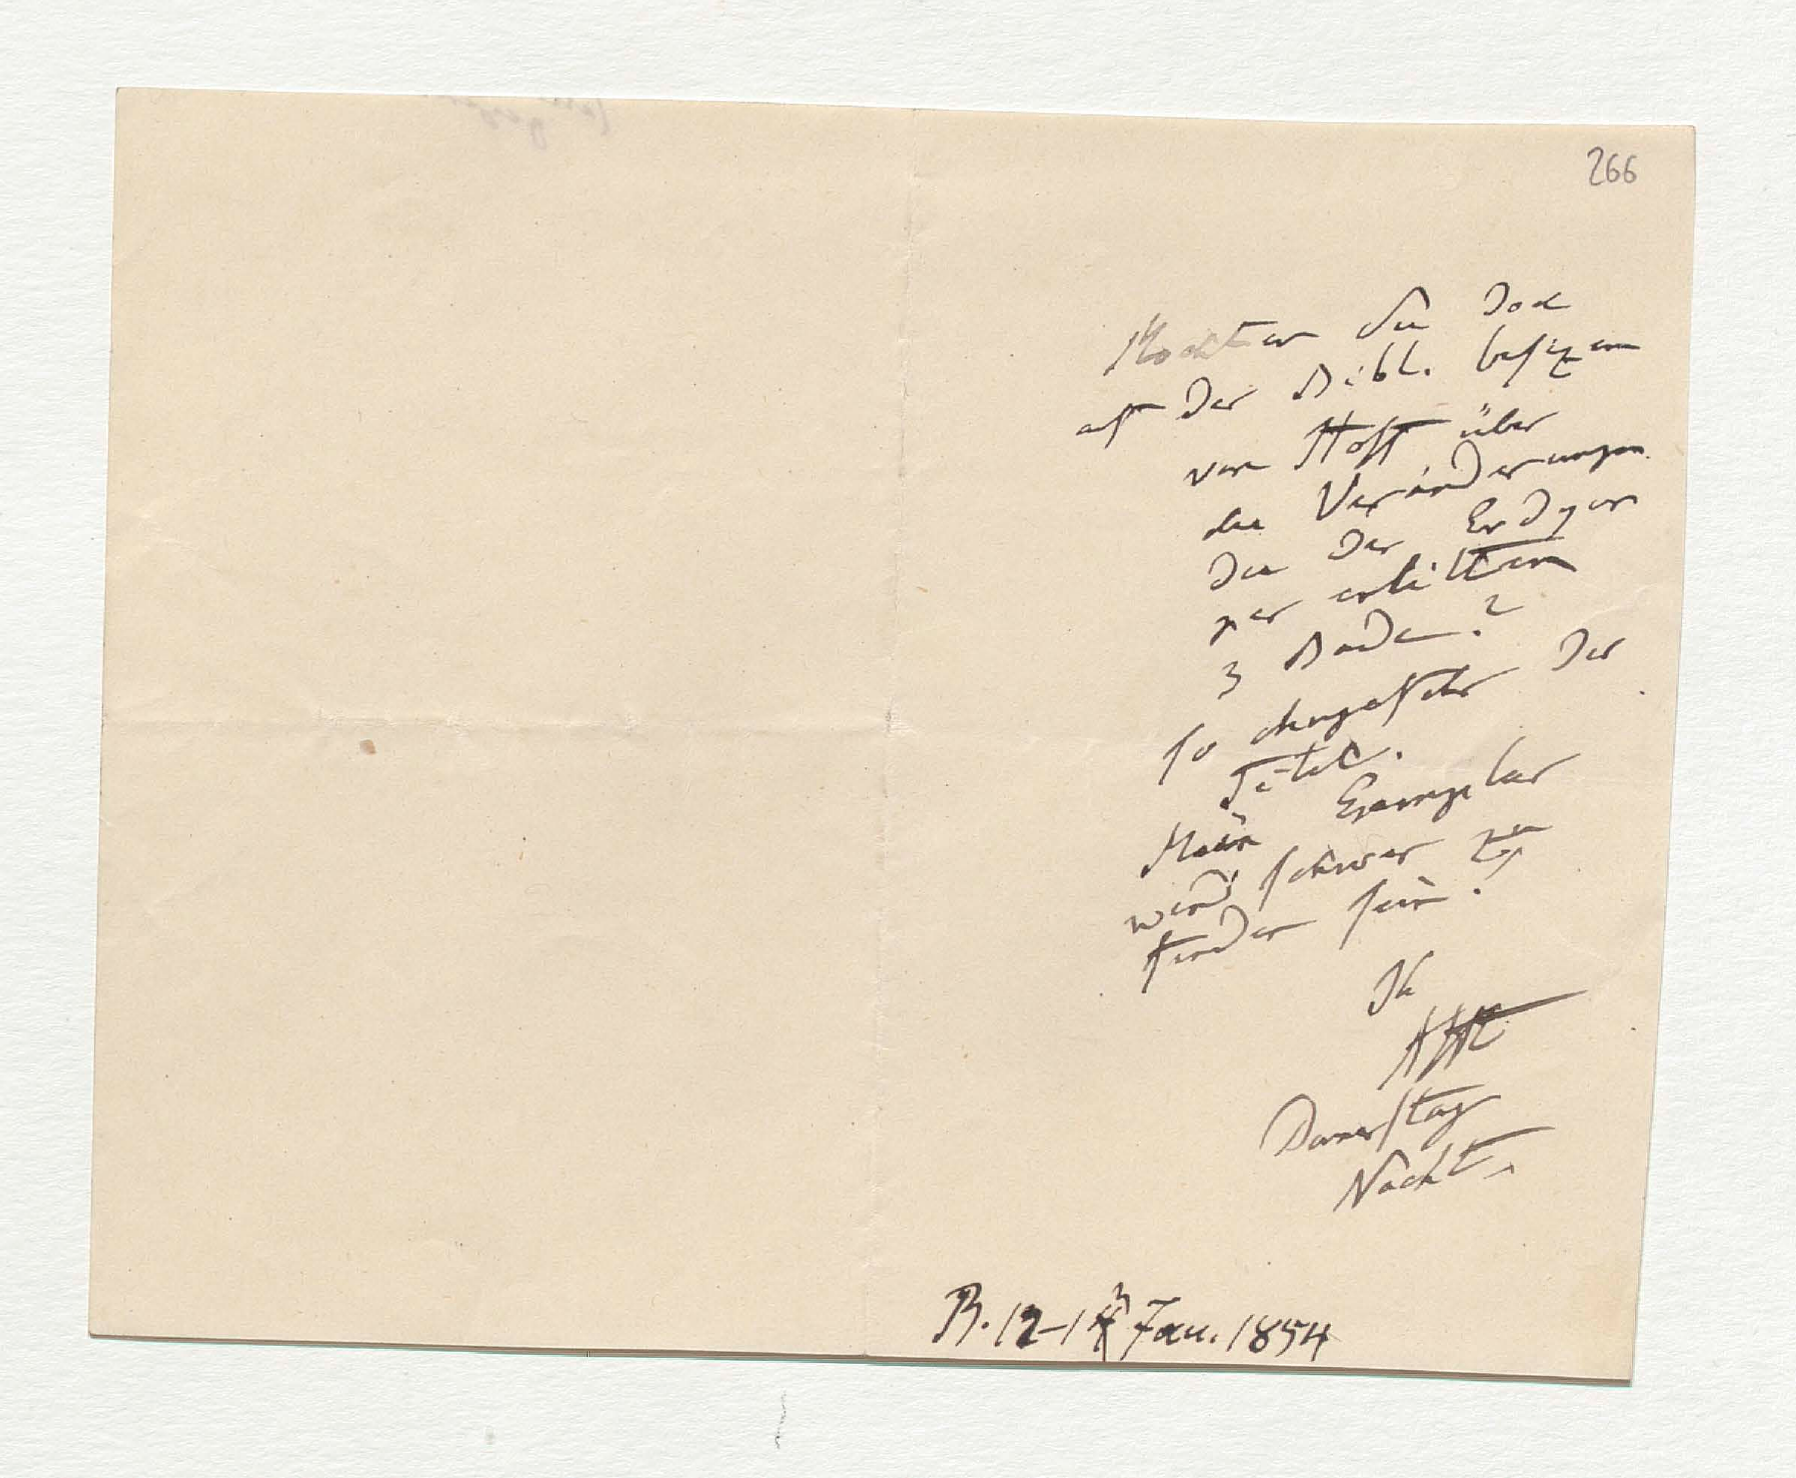 266
Möchten Sie doch
auf der Bibl. besizen
von Hoff über
die Veränderungen
die der Erdkör
per erlitten
3 Bände?
so ohngefehr der
Titel.
Mein Exemplar
wird schwer zu
finden sein.
Ih
AHt
Donerstag
Nacht.
B. 12-13 Jan. 1854